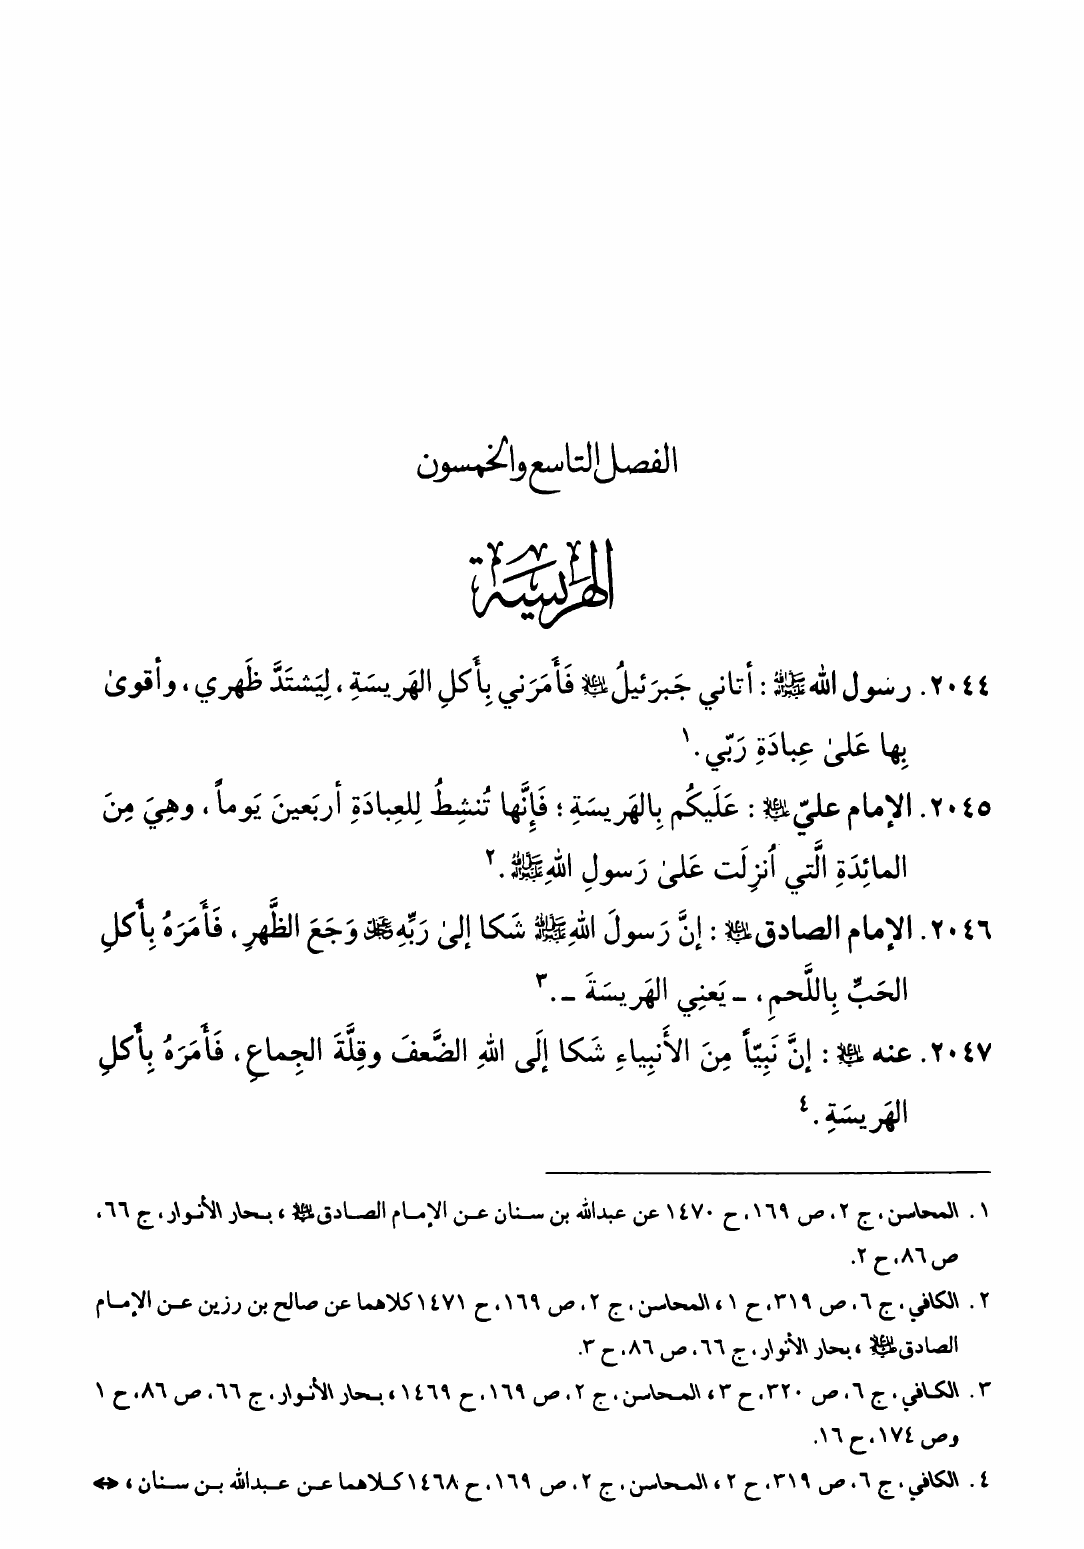 الفصل التاسع والخمسون
الهريسة
٢٠٤٤. رسول الله ﷺ : أتاني جَبرَئيلُ ﷷ فَأَمَرَني بِأَكلِ الهَريسَةِ ، لِيَشتَدَّ ظَهري ، وأقوىٰ
بِها عَلىٰ عِبادَةِ رَبّي . ١
٢٠٤٥. الإمام عليّ ﷷ : عَلَيكُم بِالهَريسَةِ ؛ فَإِنَّها تُنشِطُ لِلعِبادَةِ أربَعينَ يَوماً ، وهِيَ مِنَ
المائِدَةِ الَّتي اُنزِلَت عَلىٰ رَسولِ اللهِ ﷺ . ٢
٢٠٤٦. الإمام الصادق ﷷ : إنَّ رَسولَ اللهِ ﷺ شَكا إلىٰ رَبِّهِ وَجَعَ الظَّهرِ ، فَأَمَرَهُ بِأَكلِ
الحَبِّ بِاللَّحمِ ، ـ يَعنِي الهَريسَةَ ـ . ٣
٢٠٤٧. عنه ﷷ : إنَّ نَبِيّاً مِنَ الأَنبِياءِ شَكا إلَى اللهِ الضَّعفَ وقِلَّةَ الجِماعِ ، فَأَمَرَهُ بِأَكلِ
الهَريسَةِ . ٤
١. المحاسن ، ج ٢، ص ١٦٩، ح ١٤٧٠ عن عبدالله بن سنان عن الإمام الصادق ﷷ ، بحار الأنوار ، ج ٦٦،
ص ٨٦، ح ٢.
٢. الكافي ، ج ٦، ص ٣١٩، ح ١ ، المحاسن ، ج ٢، ص ١٦٩، ح ١٤٧١ كلاهما عن صالح بن رزين عن الإمام
الصادق ﷷ ، بحار الأنوار ، ج ٦٦، ص ٨٦، ح ٣.
٣. الكافي ، ج ٦، ص ٣٢٠، ح ٣ ، المحاسن ، ج ٢، ص ١٦٩، ح ١٤٦٩ ، بحار الأنوار ، ج ٦٦، ص ٨٦، ح ١
وص ١٧٤، ح ١٦.
٤. الكافي ، ج ٦، ص ٣١٩، ح ٢ ، المحاسن ، ج ٢، ص ١٦٩، ح ١٤٦٨ كلاهما عن عبدالله بن سنان ، ⇔